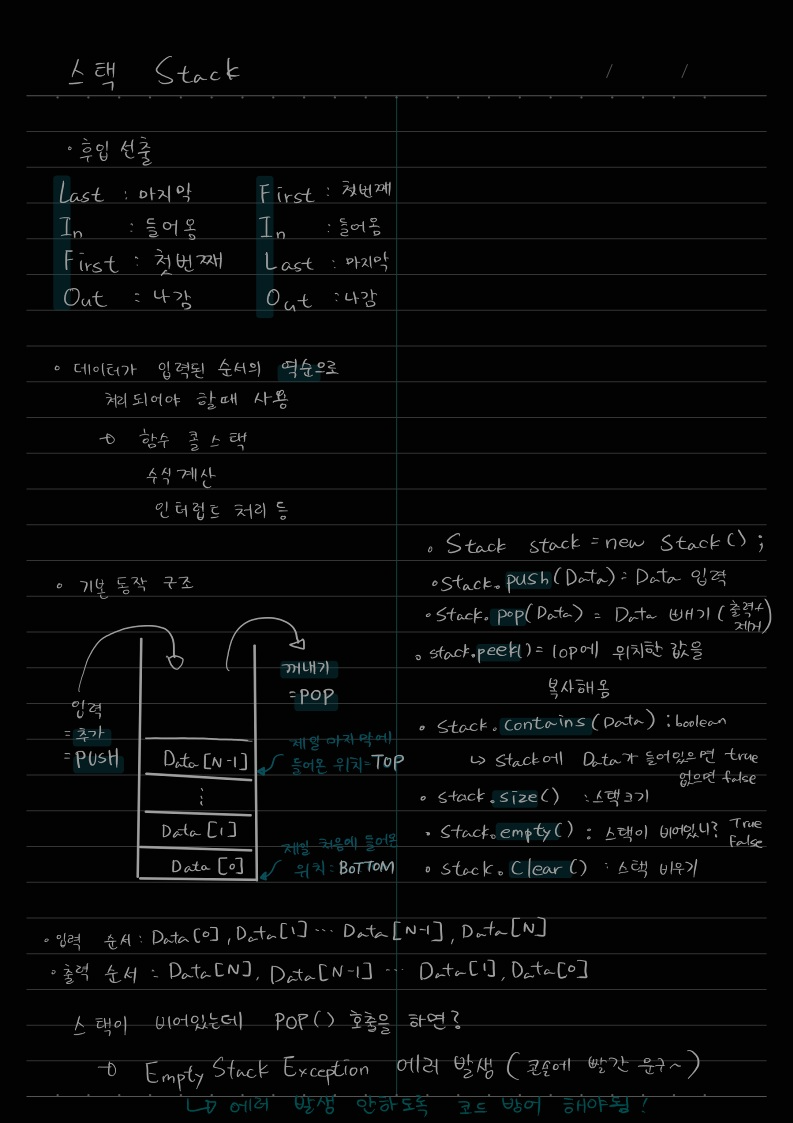 스택 Stack
/ /
• 후입선출
Last : 마지막
In : 들어옴
First : 첫번째
Out : 나감
First : 첫번째
In : 들어옴
Last : 마지막
Out : 나감
• 데이터가 입력된 순서의 역순으로
처리되어야 할때 사용
→ 함수 콜 스택
수식계산
인터럽트 처리 등
• 기본 동작 구조
입력
= 추가
= PUSH
꺼내기
= POP
Data[N-1]
⋮
Data[1]
Data[0]
제일 마지막에
들어온 위치=TOP
제일 처음에 들어온
위치:BOTTOM
• Stack stack = new Stack();
• Stack.push(Data) = Data 입력
• Stack.pop(Data) = Data 빼기 (출력+
제거)
• stack.peek() = Top에 위치한 값을
복사해옴
• stack.contains(Data) : boolean
↳ stack에 Data가 들어있으면 true
없으면 false
• stack.size() : 스택크기
• Stack.empty() : 스택이 비어있니? True
False
• stack.Clear() : 스택 비우기
• 입력 순서 : Data[0], Data[1] ... Data[N-1], Data[N]
• 출력 순서 : Data[N], Data[N-1] ... Data[1], Data[0]
스택이 비어있는데 POP() 호출을 하면?
→ Empty Stack Exception 에러 발생 (콘솔에 빨간 문구~)
↳ 에러 발생 안하도록 코드 방어 해야됨!